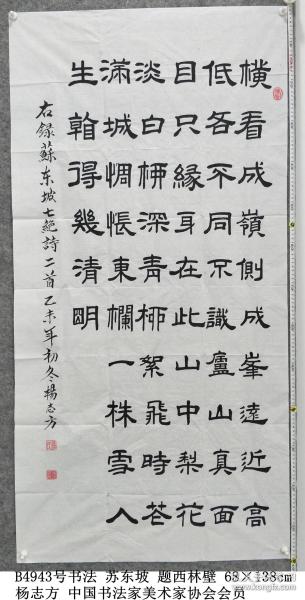 横看成嶺側成峯遠近高
低各不同不識廬山真面
目只緣身在此山中梨花
淡白柳深青柳絮飛時花
滿城惆悵東欄一株雪人
生看得幾清明
右録蘇东坡七絶詩二首乙未年初冬楊志方
B4943号书法 苏东坡 题西林壁 68×138cm
杨志方 中国书法家美术家协会会员